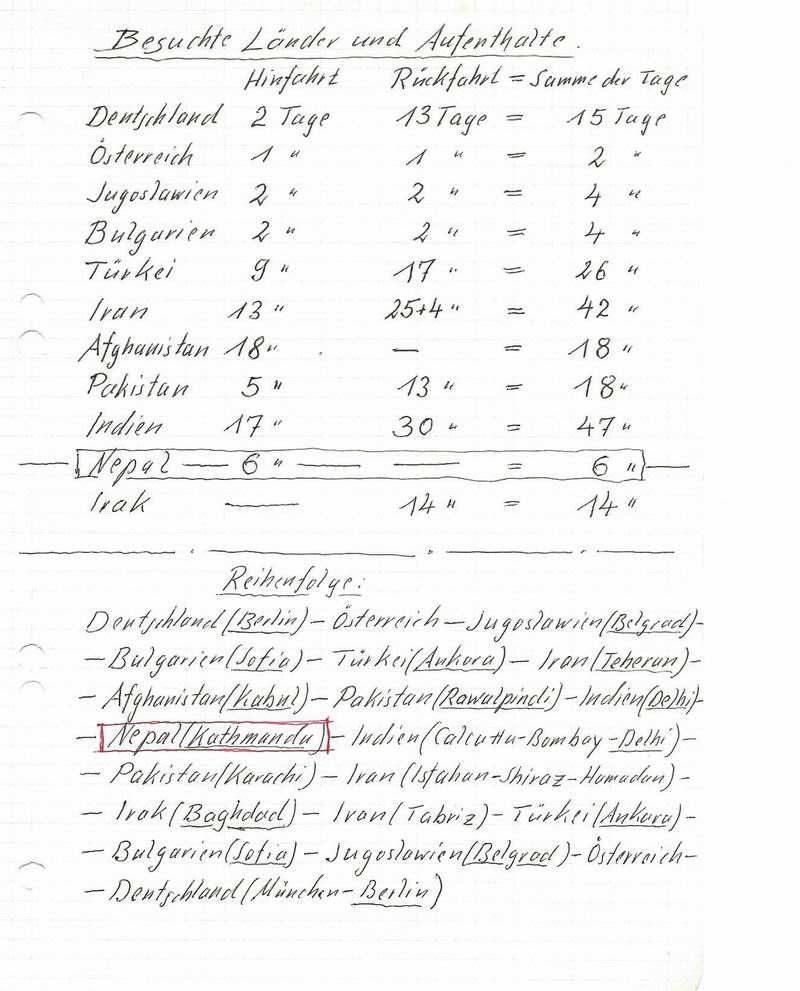 Besuchte Länder und Aufenthalte.
Hinfahrt Rückfahrt = Summe der Tage
Deutschland 2 Tage 13 Tage = 15 Tage
Österreich 1 " 1 " = 2 "
Jugoslawien 2 " 2 " = 4 "
Bulgarien 2 " 2 " = 4 "
Türkei 9 " 17 " = 26 "
Iran 13 " 25+4 " = 42 "
Afghanistan 18 " — = 18 "
Pakistan 5 " 13 " = 18 "
Indien 17 " 30 " = 47 "
Nepal — 6 " — — = 6 "
Irak — 14 " = 14 "
Reihenfolge:
Deutschland (Berlin) – Österreich – Jugoslawien (Belgrad) –
– Bulgarien (Sofia) – Türkei (Ankara) – Iran (Teheran) –
– Afghanistan (Kabul) – Pakistan (Rawalpindi) – Indien (Delhi) –
– Nepal (Kathmandu) – Indien (Calcutta - Bombay - Delhi) –
– Pakistan (Karachi) – Iran (Isfahan - Shiraz - Hamadan) –
– Irak (Baghdad) – Iran (Tabriz) – Türkei (Ankara) –
– Bulgarien (Sofia) – Jugoslawien (Belgrad) – Österreich –
– Deutschland (München - Berlin)